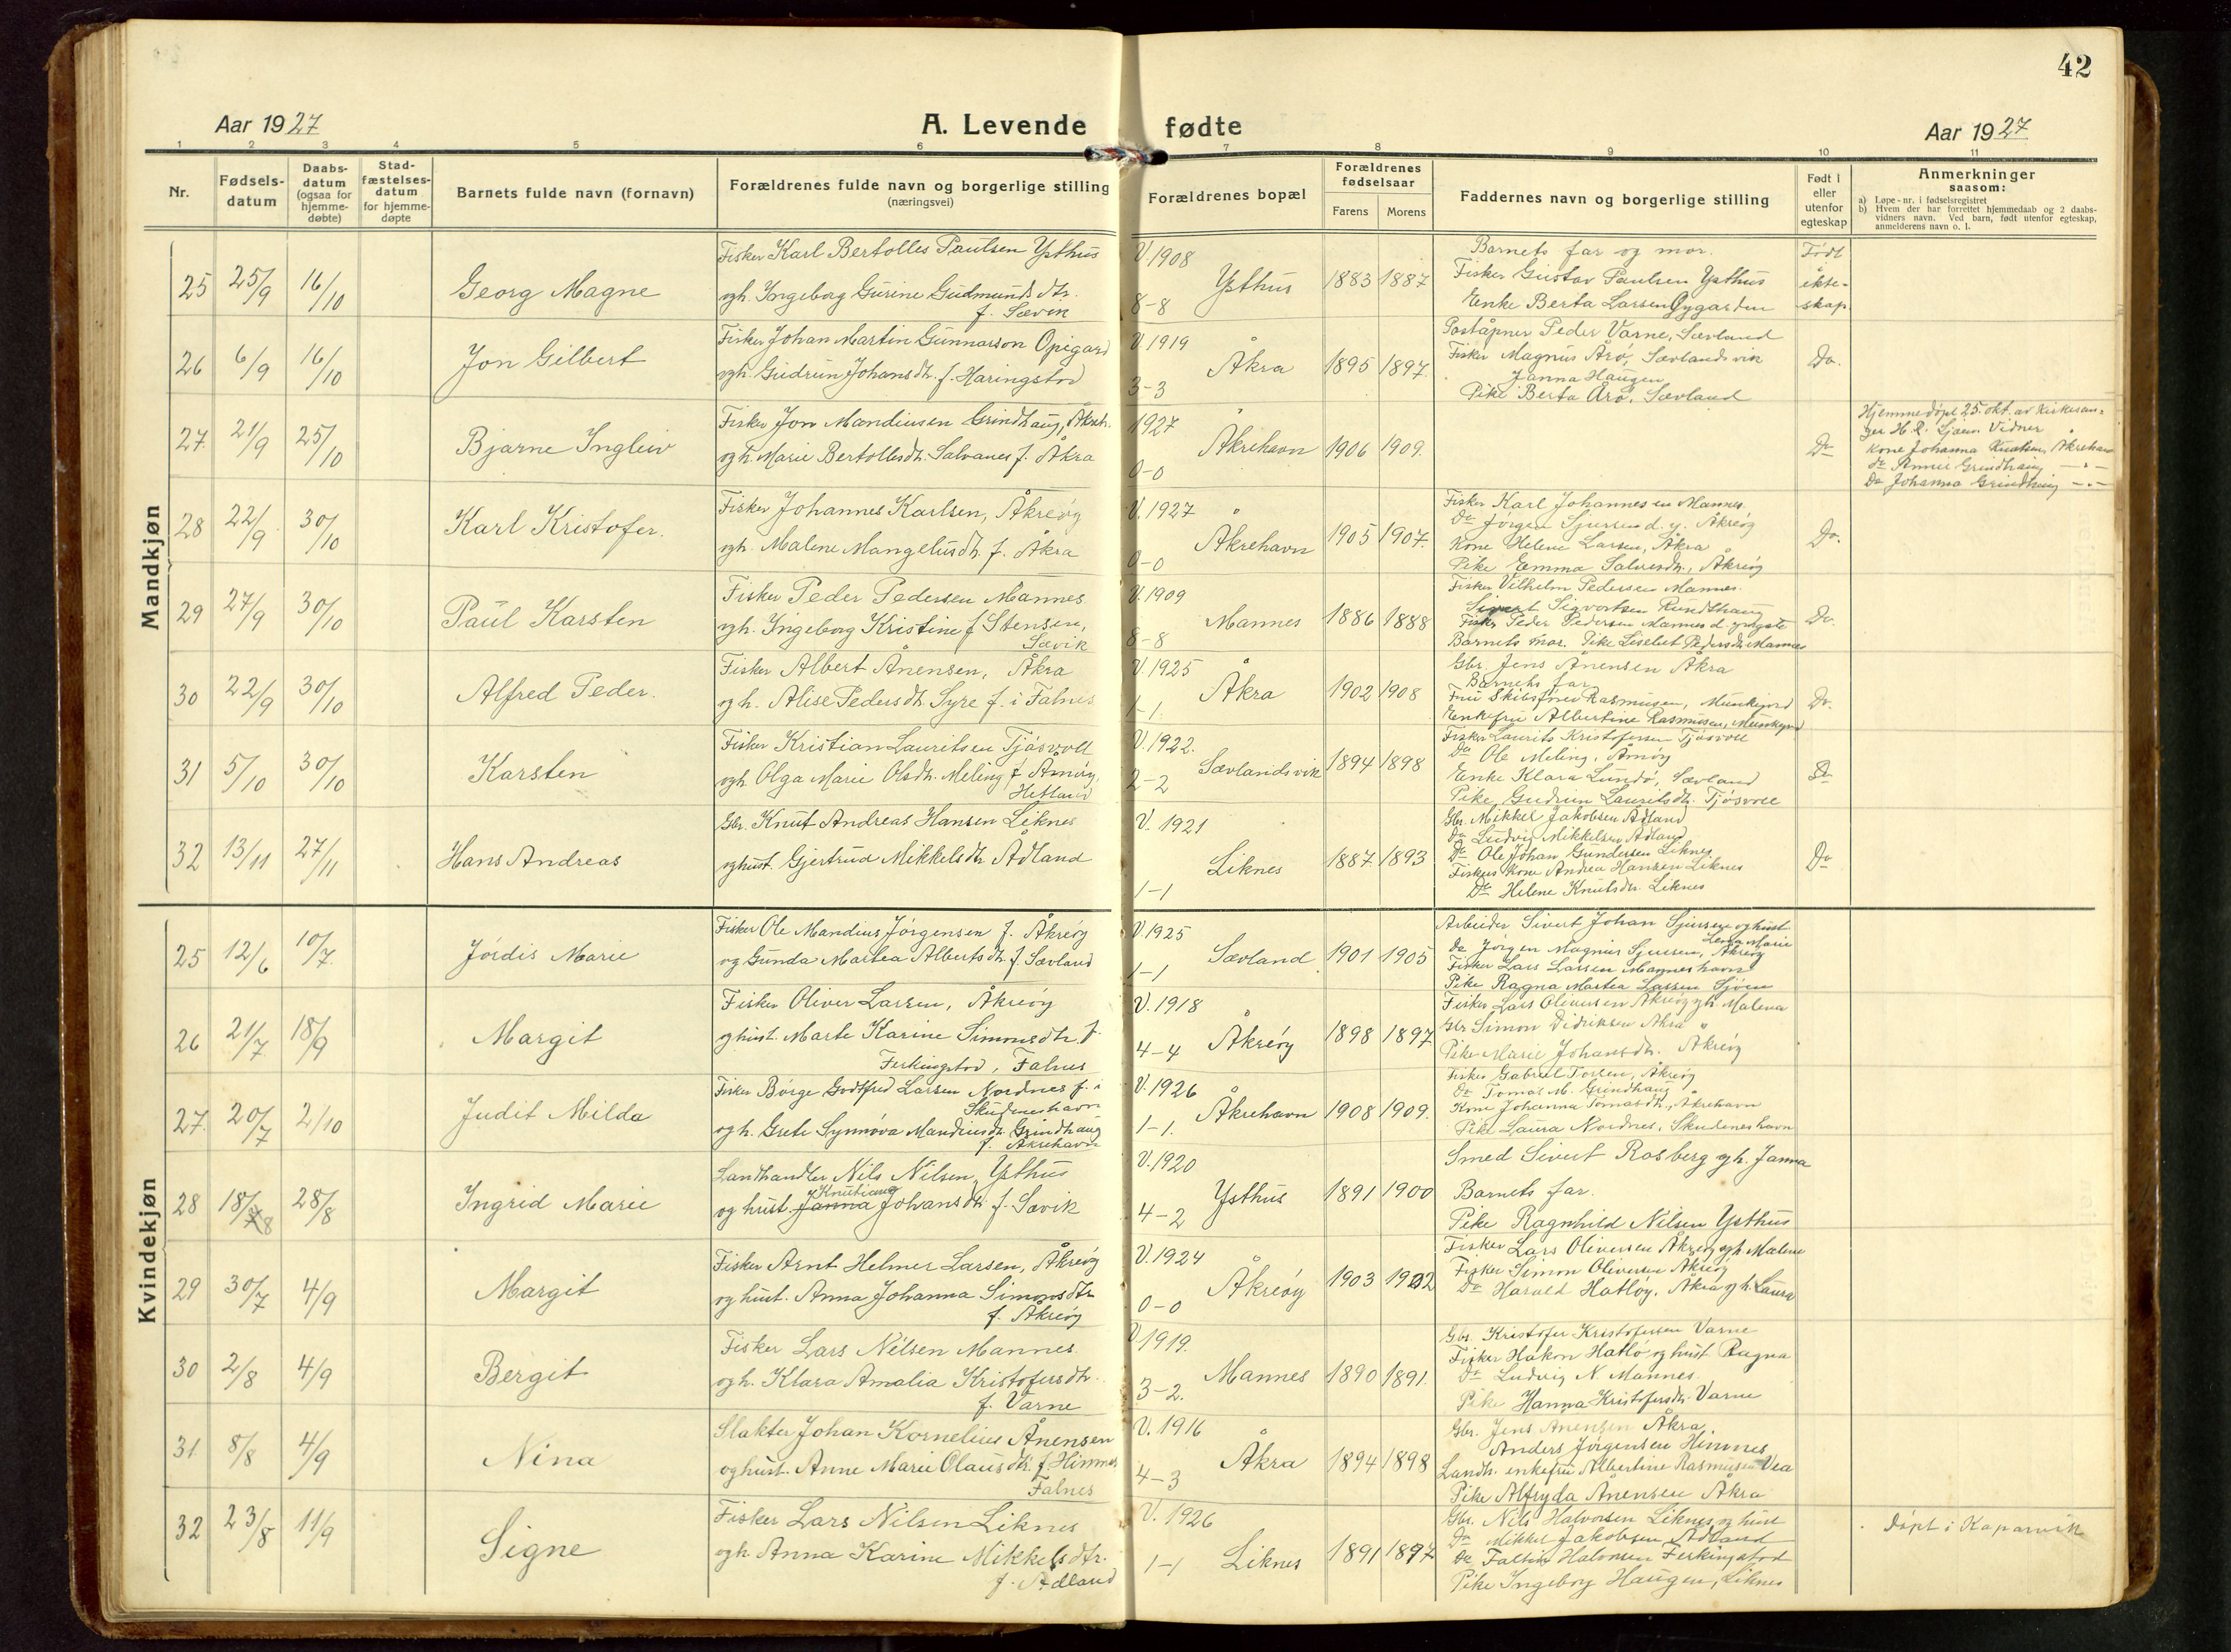 42
Aar 1927
A. Levende fødte
Aar 1927
1 2 3 4 5 6 7 8 9 10 11
Nr.
Fødsels-
datum
Daabs-
datum
(ogsaa for
hjemme-
døbte)
Stad-
fæstelses-
datum
for hjemme-
døpte
Barnets fulde navn (fornavn)
Forældrenes fulde navn og borgerlige stilling
(næringsvei)
Forældrenes bopæl
Forældrenes
fødselsaar
Farens Morens
Faddernes navn og borgerlige stilling
Født i
eller
utenfor
egteskap
Anmerkninger
saasom:
a) Løpe-nr. i fødselsregistret
b) Hvem der har forrettet hjemmedaab og 2 daabs-
vidners navn. Ved barn, født utenfor egteskap,
anmelderens navn o. l.
Mandkjøn
25 25/9 16/10 Georg Magne
Fisker Karl Bertolles Paulsen Ysthus
ogh. Ingeborg Gurine Gudmundsdtr.
f. Sævik
V. 1908
8-8 Ysthus 1883 1887
Barnets far og mor.
Fisker Gustav Paulsen Ysthus
Enke Berta Larsen Nygarden
Født
ekte-
skap
26 6/9 16/10 Jon Gilbert
Fisker Johan Martin Gunnarson Opigard
ogh. Gudrun Johansdtr. f. Haringstad
V. 1919
3-3 Åkra 1895 1897
Poståpner Peder Varne, Sævland
Fisker Magnus Årø, Sævlandsvik
Janna Haugen
Pike Berta Årø, Sævland
Do.
27. 21/9 25/10 Bjarne Ingleiv
Fisker Jon Mandiusen Grindhaug, Åkreh.
ogh. Marie Bertollesdtr. Salvanes f. Åkra
1927
0-0 Åkrehavn 1906 1909.
Do
Hjemmedøpt 25. okt. av kirkesan-
ger H. R. Sjøen. Vidner
Kone Johanna Knutsen, Åkrehavn
do Annie Grindhaug -"-
Do Johanna Grindhaug -"-
28 22/9 30/10 Karl Kristofer.
Fisker Johannes Karlsen, Åkreøy
ogh. Malene Mangelusdtr. f. Åkra
V. 1927
0-0 Åkrehavn 1905 1907.
Fisker Karl Johannesen Mannes.
Do Jørgen Sjursen d. y. Åkreøy
Kone Helene Larsen, Åkra
Pike Emma Salvesdtr., Åkreøy
Do.
29 27/9 30/10 Paul Karsten
Fisker Peder Pedersen Mannes.
ogh. Ingeborg Kristine f. Stensen,
Sævik
V. 1909
8-8 Mannes 1886 1888
Fisker Vilhelm Pedersen Mannes.
Sivert Sigvartsen Rundshaug
Fisker Peder Pedersen Mannes d. yngste
Barnets mor. Pike Lisebet Pedersdtr. Mannes
Do.
30 22/9 30/10 Alfred Peder.
Fisker Albert Ånensen, Åkra
ogh. Alise Pedersdtr. Syre f. i Falnes
V. 1925
1-1. Åkra 1902 1908
Gbr. Jens Ånensen Åkra
Barnets far
Fru Skibsfører Rasmussen, Munkejord
Enkefru Albertine Rasmussen, Munkejord
Do.
31 5/10 30/10 Karsten
Fisker Kristian Lauritsen Tjøsvoll
ogh. Olga Marie Olsdtr. Meling f. Åmøy,
Hetland
V. 1922.
2-2 Sævlandsvik 1894 1898
Fisker Laurits Kristofersen Tjøsvoll
Do Ole Meling, Åmøy
Enke Klara Lundø, Sævland
Pike Gudrun Lauritsdtr. Tjøsvoll
Do
32 13/11 27/11 Hans Andreas
Gbr. Knut Andreas Hansen Liknes
oghust. Gjertrud Mikkelsdtr. Ådland
V. 1921
1-1 Liknes 1887 1893
Gbr. Mikkel Jakobsen Ådland
Do Ludvig Mikkelsen Ådland
Do Ole Johan Gundersen Liknes
Fiskers kone Andrea Hansen Liknes
Do Helene Knutsdtr. Liknes
Do
Kvindekjøn
25 12/6 10/7 Jordis Marie
Fisker Ole Mandius Jørgensen f. Åkreøy
og Gunda Martea Albertsdtr. f. Sævland
V. 1925
1-1 Sævland 1901 1905
Arbeider Sivert Johan Sjursen oghust
Lena Marie
do Jørgen Magnus Sjursen, Åkreøy
Fisker Lars Larsen Manneshavn
Pike Ragna Martea Larsen Sjøen
26 21/7 18/9 Margit
Fisker Oliver Larsen, Åkreøy
oghust. Marte Karine Simonsdtr. f.
Ferkingstad, Falnes
V. 1918
4-4 Åkreøy 1898 1897
Fisker Lars Oliversen Åkreøy ogh. Malena
Gbr Simon Didriksen Åkra
Pike Marie Johansdtr. Åkreøy
27. 20/7 2/10 Judit Milda
Fisker Børge Godtfred Larsen Nordnes f. i
Skudeneshavn
ogh. Grete Synnøva Mandiusdtr. Grindhaug
f. Åkrehavn
V. 1926
1-1. Åkrehavn 1908 1909.
Fisker Gabriel Torsen, Åkreøy
Do Tomas M. Grindhaug
Kone Johanna Tomasdtr., Åkrehavn
Pike Laura Nordnes, Skudeneshavn
28 18/8 28/8 Ingrid Marie
Landhandler Nils Nilsen, Ysthus
Knutiane
og hust. Janna Johansdtr. f. Sævik
V. 1920
4-2 Ysthus 1891 1900
Smed Sivert Rosberg ogh. Janna
Barnets far.
Pike Ragnhild Nilsen Ysthus
29 30/7 4/9 Margit
Fisker Arnt Helmer Larsen, Åkreøy
oghust. Anna Johanna Simonsdtr
f. Åkreøy
V. 1924
0-0 Åkreøy 1903 1902
Fisker Lars Oliversen Åkreøy ogh. Malene
Fisker Simon Oliversen Åkreøy
Do Harald Hatløy, Åkra ogh. Laura
30 2/8 4/9 Bergit
Fisker Lars Nilsen Mannes.
ogh. Klara Amalia Kristofersdtr.
f. Varne
V. 1919.
3-2. Mannes 1890 1891.
Gbr. Kristofer Kristofersen Varne
Fisker Hakon Hatlø og hust. Ragna
Do Ludvig N. Mannes.
Pike Hanna Kristofersdtr. Varne
31 8/8 4/9 Nina
Slakter Johan Kornelius Ånensen
oghust. Anne Marie Olausdtr. f. Hinnes
Falnes
V. 1916
4-3 Åkra 1894 1898
Gbr. Jens Ånensen Åkra
Anders Jørgensen Hinnes
Landh. enkefru Albertine Rasmussen Vea
Pike Alfryda Ånensen Åkra
32 23/8 11/9 Signe
Fisker Lars Nilsen Liknes
ogh. Anna Karine Mikkelsdtr.
f. Ådland
V. 1926
1-1 Liknes 1891 1897
Gbr. Nils Halvorsen Liknes og hust
Do Mikkel Jakobsen Ådland
Do Faltin Halvorsen Ferkingstad
Pike Ingeborg Haugen, Liknes
Døpt i Kaparvik